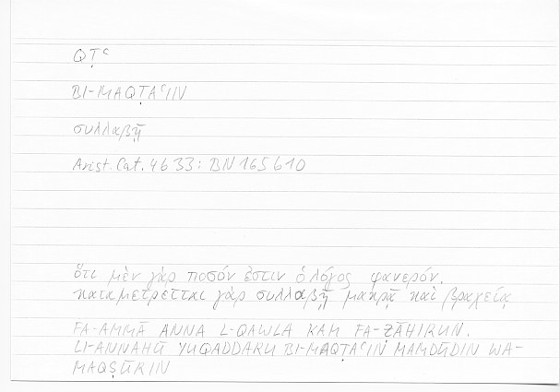 QṬʿ
BI-MAQṬAʿIN
συλλαβῇ
Arist. Cat. 4b33: BN 165b10
ὅτι μὲν γὰρ ποσόν ἐστιν ὁ λόγος φανερόν.
καταμετρεῖται γὰρ συλλαβῇ μακρᾷ καὶ βραχείᾳ
FA-AMMĀ ANNA L-QAWLA KAM FA-ẒĀHIRUN.
LI-ANNAHŪ YUQADDARU BI-MAQṬAʿIN MAMDŪDIN WA-
MAQṢŪRIN